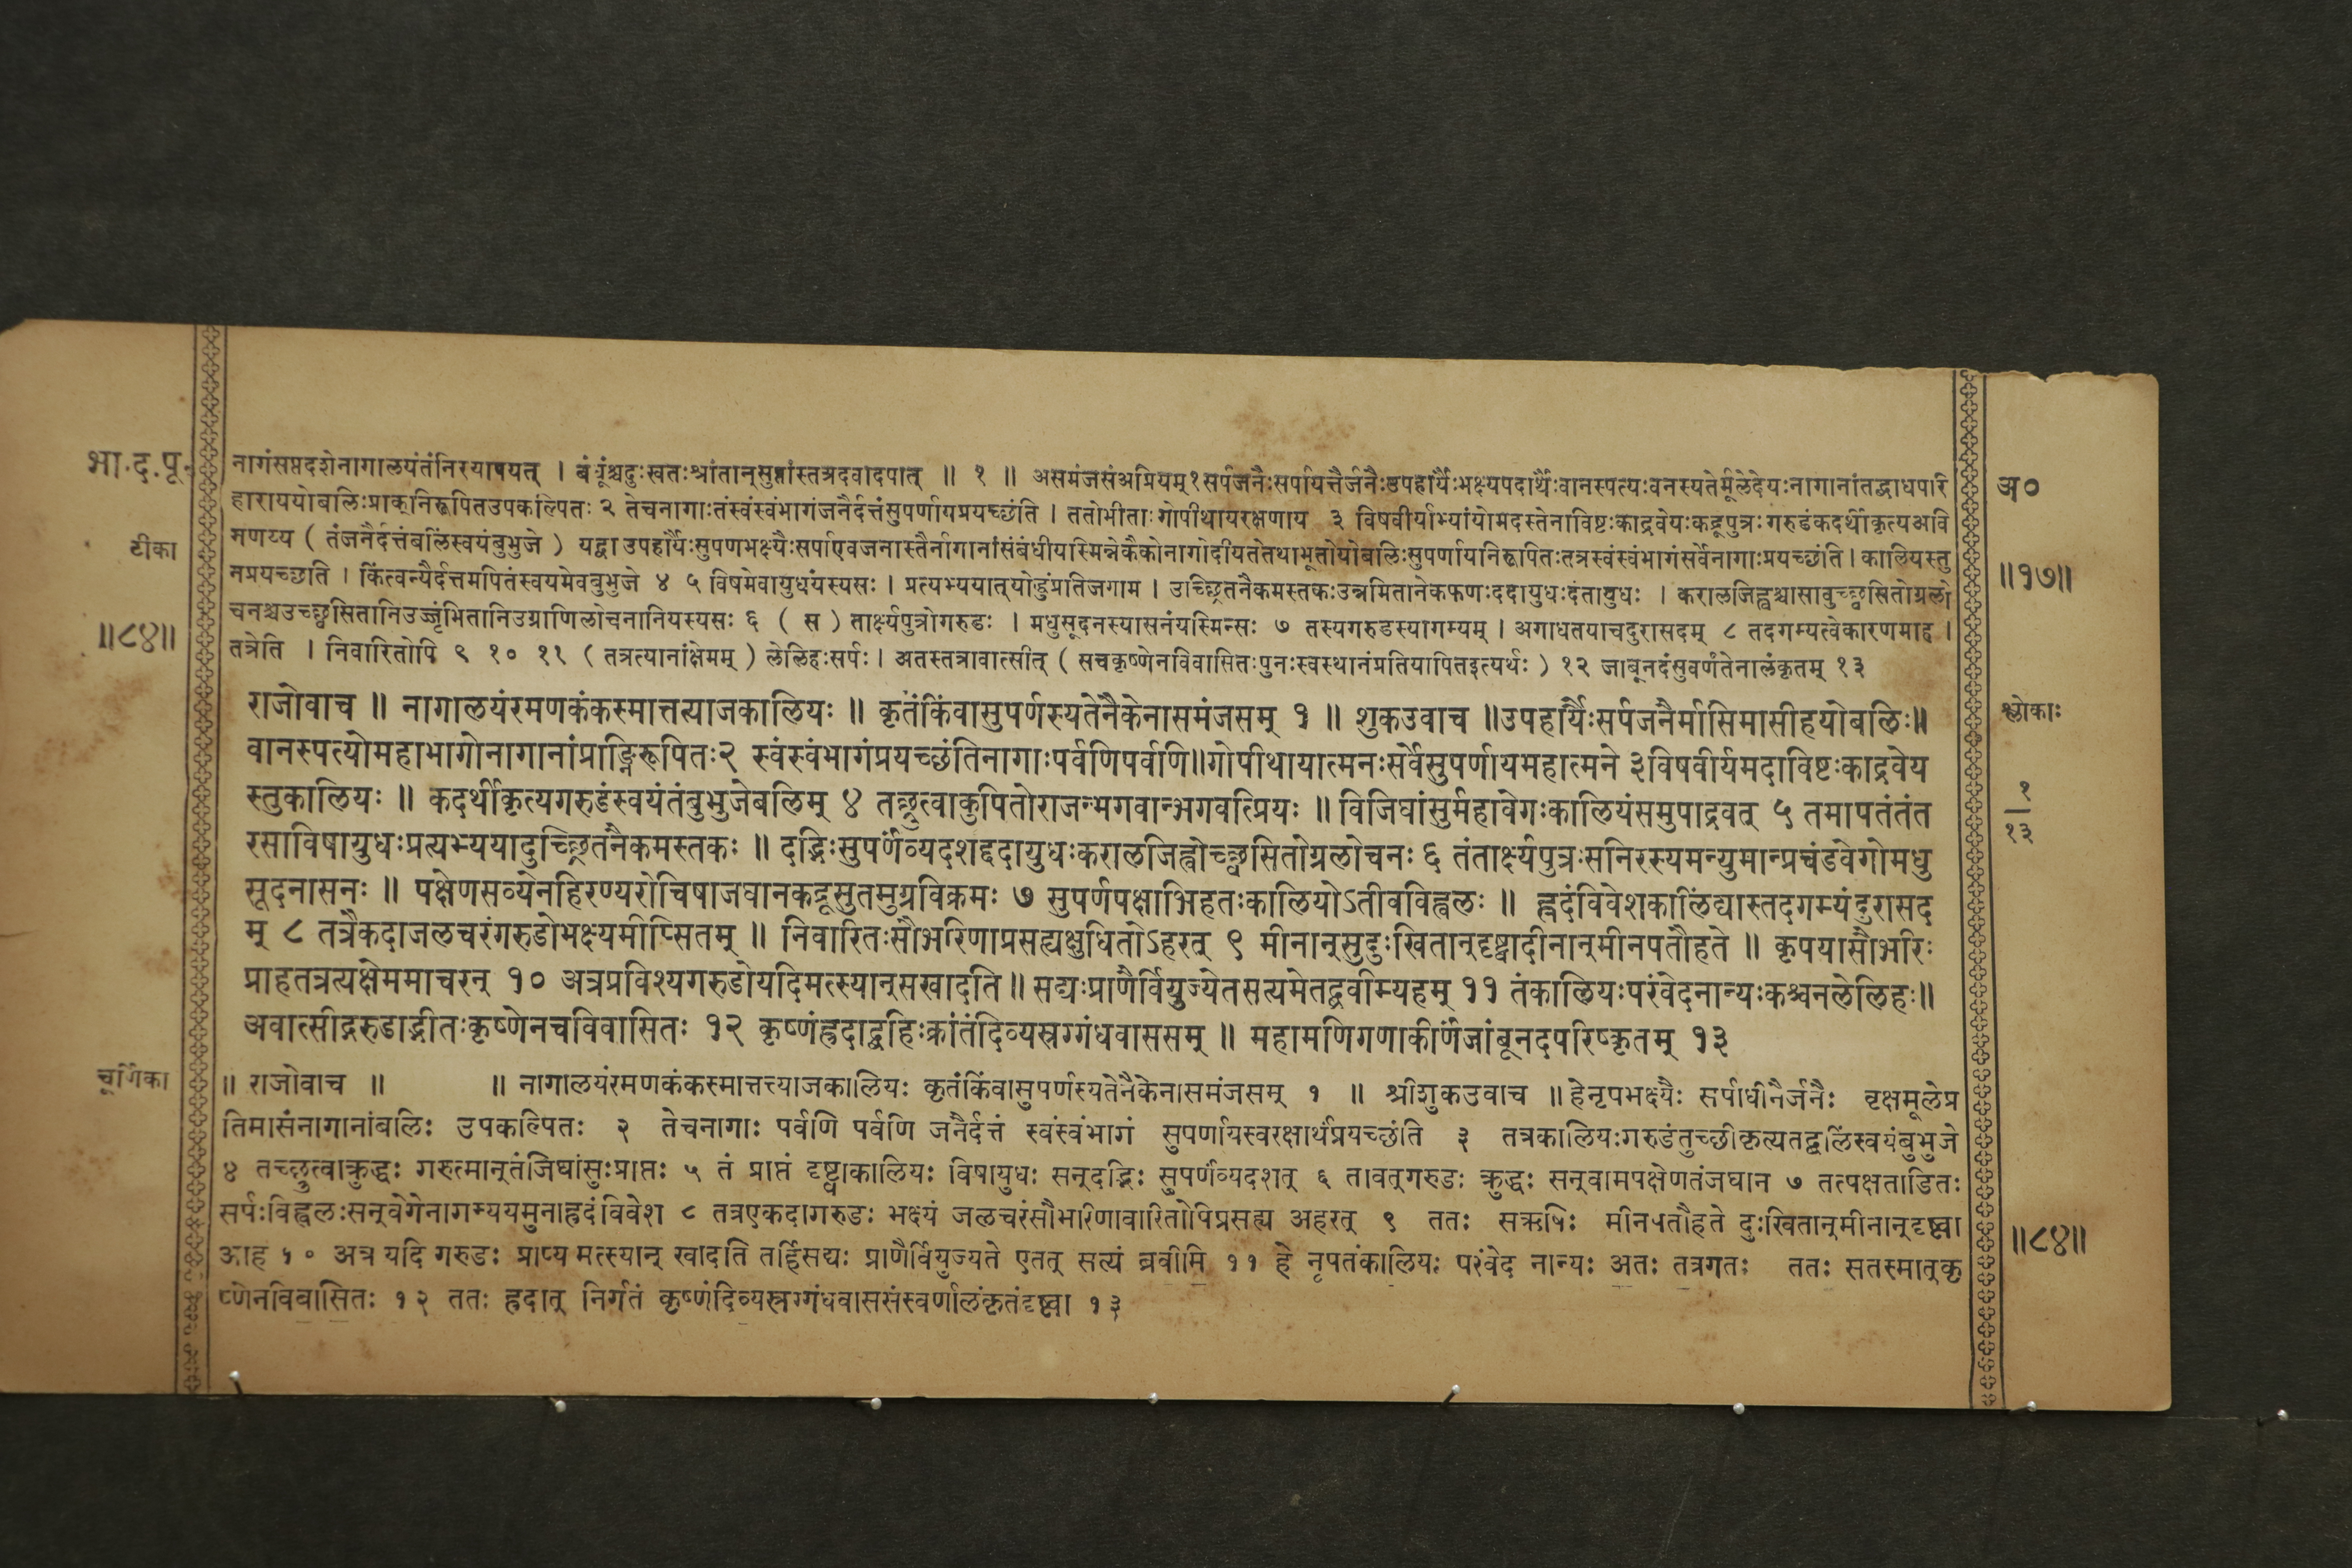 भा.द.पू.
टीका
॥८४॥
नागंसप्तदशेनागालयंतंनिरयापयत् । बंधूंश्चदुःखतःश्रांतान्सुप्तांस्तत्रदवादपात् ॥ १ ॥ असमंजसंअप्रियम्१सर्पजनैःसर्पायत्तैर्जनैःउपहार्यैःभक्ष्यपदार्थैःवानस्पत्यःवनस्पतेर्मूलेदेयःनागानांतद्बाधपरि
हाराययोबलिःप्राक्निरूपितउपकल्पितः २ तेचनागाःतंस्वंस्वंभागंजनैर्दत्तंसुपर्णायप्रयच्छंति । ततोभीताःगोपीथायरक्षणाय ३ विषवीर्याभ्यांयोमदस्तेनाविष्टःकाद्रवेयःकद्रूपुत्रःगरुडंकदर्थीकृत्यअवि
मणय्य ( तंजनैर्दत्तंबलिंस्वयंबुभुजे ) यद्वाउपहार्यैःसुपणभक्ष्यैःसर्पाएवजनास्तैर्नागानांसंबंधीयस्मिन्नेकैकोनागोदीयतेतथाभूतोयोबलिःसुपर्णायनिरूपितःतत्रस्वंस्वंभागंसर्वेनागाःप्रयच्छंति।कालियस्तु
नप्रयच्छति । किंत्वन्यैर्दत्तमपितंस्वयमेवबुभुजे ४ ५ विषमेवायुधंयस्यसः । प्रत्यभ्ययात्योद्धुंप्रतिजगाम । उच्छ्रितनैकमस्तकःउन्नमितानेकफणःददायुधःदंतायुधः । करालजिह्वश्चासावुच्छ्वसितोग्रलो
चनश्चउच्छ्वसितानिउज्जृंभितानिउग्राणिलोचनानियस्यसः ६ ( स ) तार्क्ष्यपुत्रोगरुडः । मधुसूदनस्यासनंयस्मिन्सः ७ तस्यगरुडस्यागम्यम् । अगाधतयाचदुरासदम् ८ तदगम्यत्वेकारणमाह ।
तत्रेति । निवारितोपि ९ १० ११ ( तत्रत्यानांक्षेमम् ) लेलिहःसर्पः । अतस्तत्रावात्सीत् ( सचकृष्णेनविवासितःपुनःस्वस्थानंप्रतियापितइत्यर्थः ) १२ जांबूनदंसुवर्णंतेनालंकृतम् १३
राजोवाच ॥ नागालयंरमणकंकस्मात्तत्याजकालियः ॥ कृतंकिंवासुपर्णस्यतेनैकेनासमंजसम् १ ॥ शुकउवाच ॥उपहार्यैःसर्पजनैर्मासिमासीहयोबलिः॥
वानस्पत्योमहाभागोनागानांप्राङ्निरूपितः२ स्वंस्वंभागंप्रयच्छंतिनागाःपर्वणिपर्वणि॥गोपीथायात्मनःसर्वेसुपर्णायमहात्मने ३विषवीर्यमदाविष्टःकाद्रवेय
स्तुकालियः ॥ कदर्थीकृत्यगरुडंस्वयंतंबुभुजेबलिम् ४ तच्छ्रुत्वाकुपितोराजन्भगवान्भगवत्प्रियः ॥ विजिघांसुर्महावेगःकालियंसमुपाद्रवत् ५ तमापतंतंत
रसाविषायुधःप्रत्यभ्ययादुच्छ्रितनैकमस्तकः ॥ दद्भिःसुपर्णंव्यदशद्ददायुधःकरालजिह्वोच्छ्वसितोग्रलोचनः ६ तंतार्क्ष्यपुत्रःसनिरस्यमन्युमान्प्रचंडवेगोमधु
सूदनासनः ॥ पक्षेणसव्येनहिरण्यरोचिषाजघानकद्रूसुतमुग्रविक्रमः ७ सुपर्णपक्षाभिहतःकालियोऽतीवविह्वलः ॥ ह्रदंविवेशकालिंद्यास्तदगम्यंदुरासद
म् ८ तत्रैकदाजलचरंगरुडोभक्ष्यमीप्सितम् ॥ निवारितःसौभरिणाप्रसह्यक्षुधितोऽहरत् ९ मीनान्सुदुःखितान्दृष्ट्वादीनान्मीनपतौहते ॥ कृपयासौभरिः
प्राहतत्रत्यक्षेममाचरन् १० अत्रप्रविश्यगरुडोयदिमत्स्यान्सखादति॥ सद्यःप्राणैर्वियुज्येतसत्यमेतद्ब्रवीम्यहम् ११ तंकालियःपरंवेदनान्यःकश्चनलेलिहः॥
अवात्सीद्गरुडाद्भीतःकृष्णेनचविवासितः १२ कृष्णंह्रदाद्बहिःक्रांतंदिव्यस्रग्गंधवाससम् ॥ महामणिगणाकीर्णंजांबूनदपरिष्कृतम् १३
चूर्णिका
॥ राजोवाच ॥ ॥ नागालयंरमणकंकस्मात्तत्त्याजकालियः कृतंकिंवासुपर्णस्यतेनैकेनासमंजसम् १ ॥ श्रीशुकउवाच ॥ हेनृपभक्ष्यैः सर्पाधीनैर्जनैः वृक्षमूलेप्र
तिमासंनागानांबलिः उपकल्पितः २ तेचनागाः पर्वणि पर्वणि जनैर्दत्तं स्वंस्वंभागं सुपर्णायस्वरक्षार्थंप्रयच्छंति ३ तत्रकालियःगरुडंतुच्छीकृत्यतद्बलिंस्वयंबुभुजे
४ तच्छ्रुत्वाक्रुद्धः गरुत्मान्तंजिघांसुःप्राप्तः ५ तं प्राप्तं दृष्ट्वाकालियः विषायुधः सन्दद्भिः सुपर्णंव्यदशत् ६ तावत्गरुडः क्रुद्धः सन्वामपक्षेणतंजघान ७ तत्पक्षताडितः
सर्पःविह्वलःसन्वेगेनागम्ययमुनाह्रदंविवेश ८ तत्रएकदागरुडः भक्ष्यं जलचरंसौभरिणावारितोपिप्रसह्य अहरत् ९ ततः सऋषिः मीनपतौहते दुःखितान्मीनान्दृष्ट्वा
आह १० अत्र यदि गरुडः प्राप्य मत्स्यान् खादति तर्हिसद्यः प्राणैर्वियुज्यते एतत् सत्यं ब्रवीमि ११ हे नृपतंकालियः परंवेद नान्यः अतः तत्रगतः ततः सतस्मात्कृ
ष्णेनविवासितः १२ ततः ह्रदात् निर्गतं कृष्णंदिव्यस्रग्गंधवाससंस्वर्णालंकृतंदृष्ट्वा १३
अ०
॥१७॥
श्लोकाः
१
१३
॥८४॥